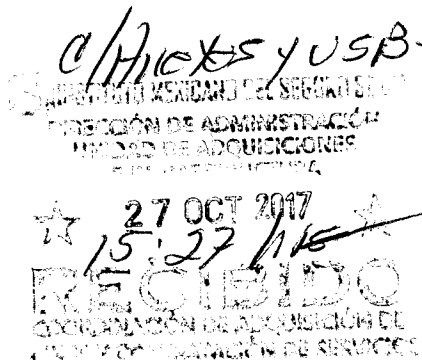 C/Anexos y USB.
INSTITUTO MEXICANO DEL SEGURO
DIRECCIÓN DE ADMINISTRACIÓN
UNIDAD DE ADQUISICIONES
27 OCT 2017
15:27
RECIBIDO
COORDINACIÓN DE ADQUISICIÓN DE
DE SERVICIOS